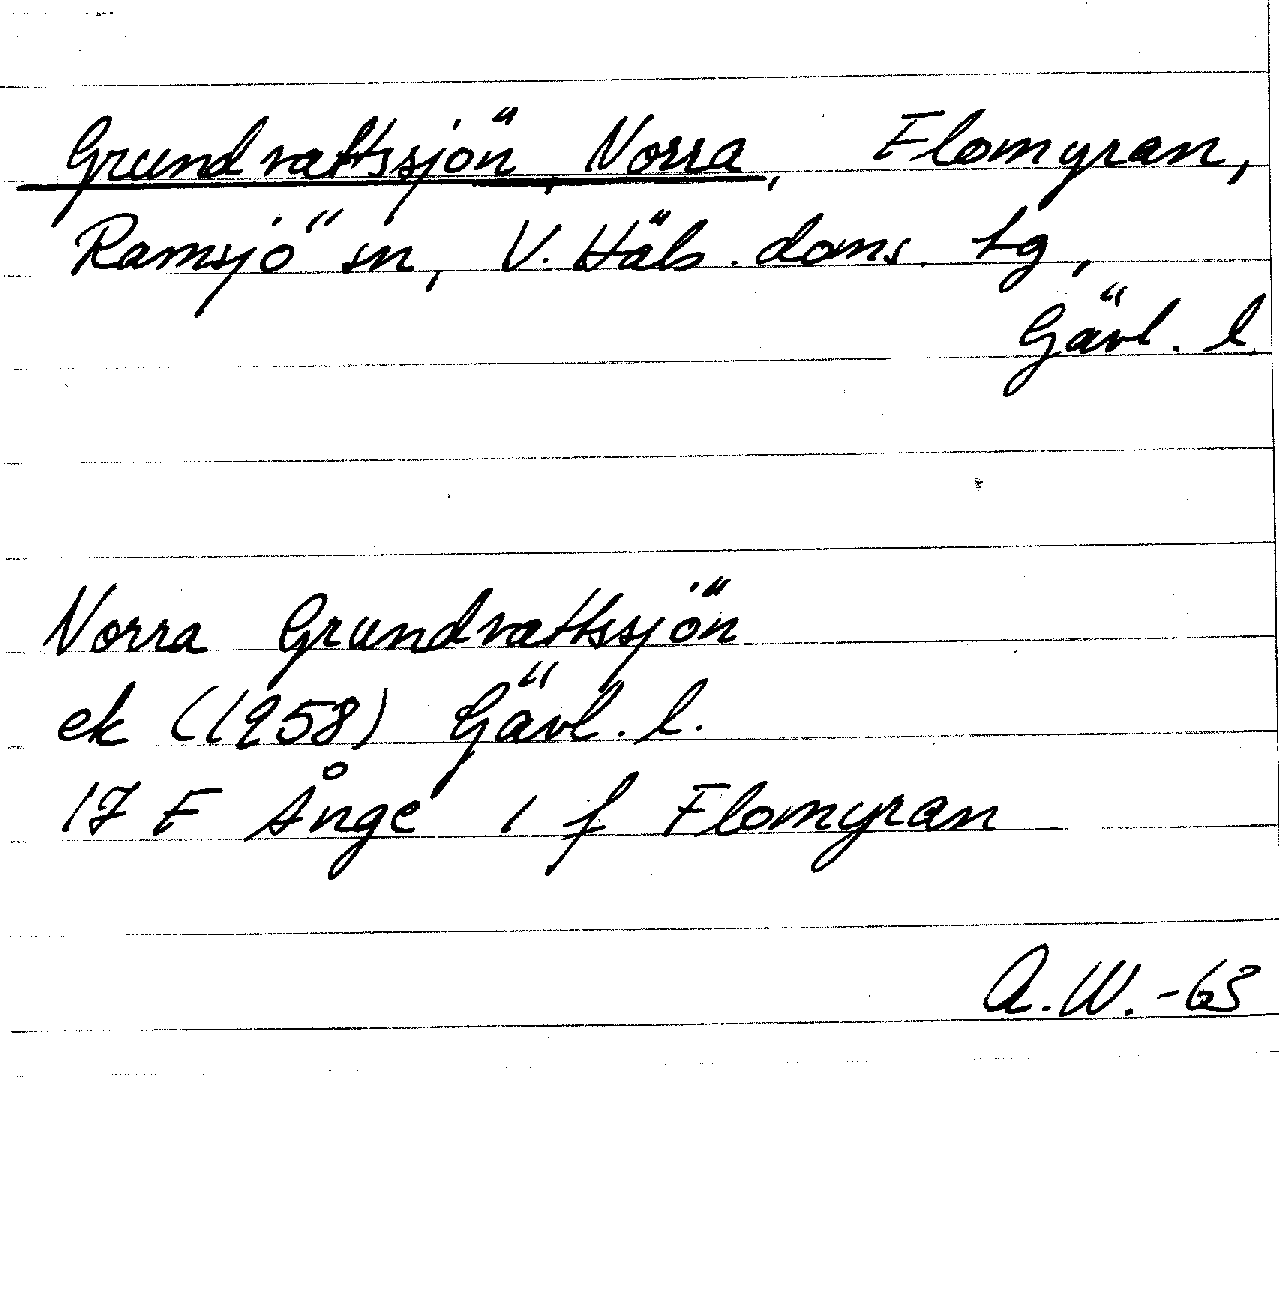 Grundvattssjön, Norra, Flomyran,
Ramsjö sn, V. Häls. doms. tg,
Gävl. l.
Norra Grundvattssjön
ek (1958) Gävl. l.
17 F Ånge 1 f Flomyran
A.W.-63